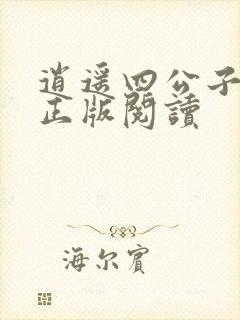 逍遥四公子
正版閱讀
海尔賓